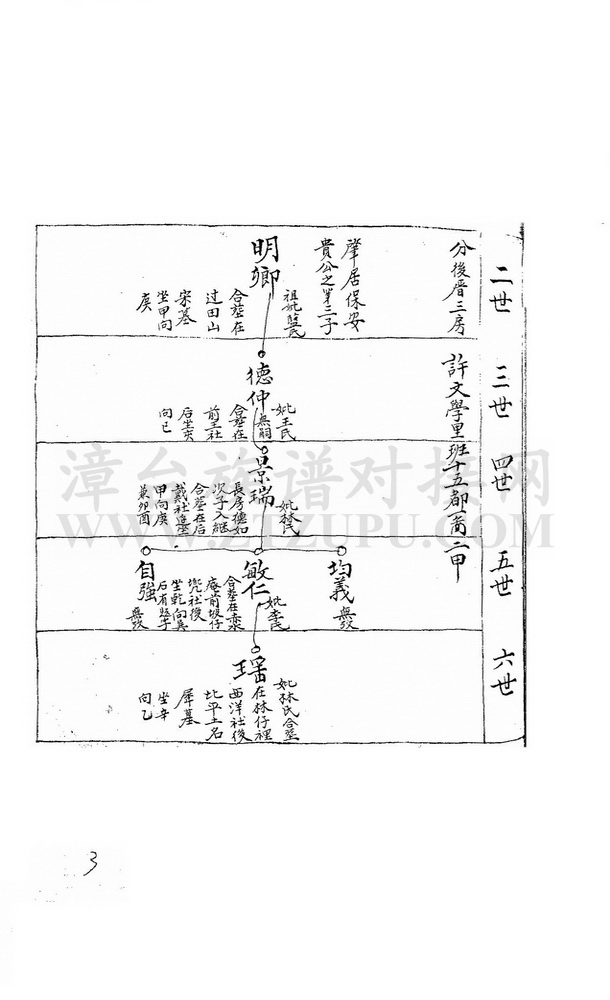 二世
三世
四世
五世
六世
分後厝三房
許文學里班十五都一啚二甲
肇居保安
貴公之第三子
明卿
祖妣藍氏
合塟在
过田山
宋墓
坐甲向
庚
德仲
妣王氏
無嗣
合塟在
前王社
后坐亥
向巳
景瑞
妣林氏
長房德如
次子入継
合塟在后
戴社邉
甲向庚
兼卯酉
均義
無攷
敏仁
妣李氏
庵前坂仔
兜社後
坐乾向巽
自強
無攷
瑶
妣林氏合塟
在林仔裡
西洋社後
比平土名
犀墓
坐辛
向乙
漳台族谱对接网
WWW.ZTZUPU.COM
3